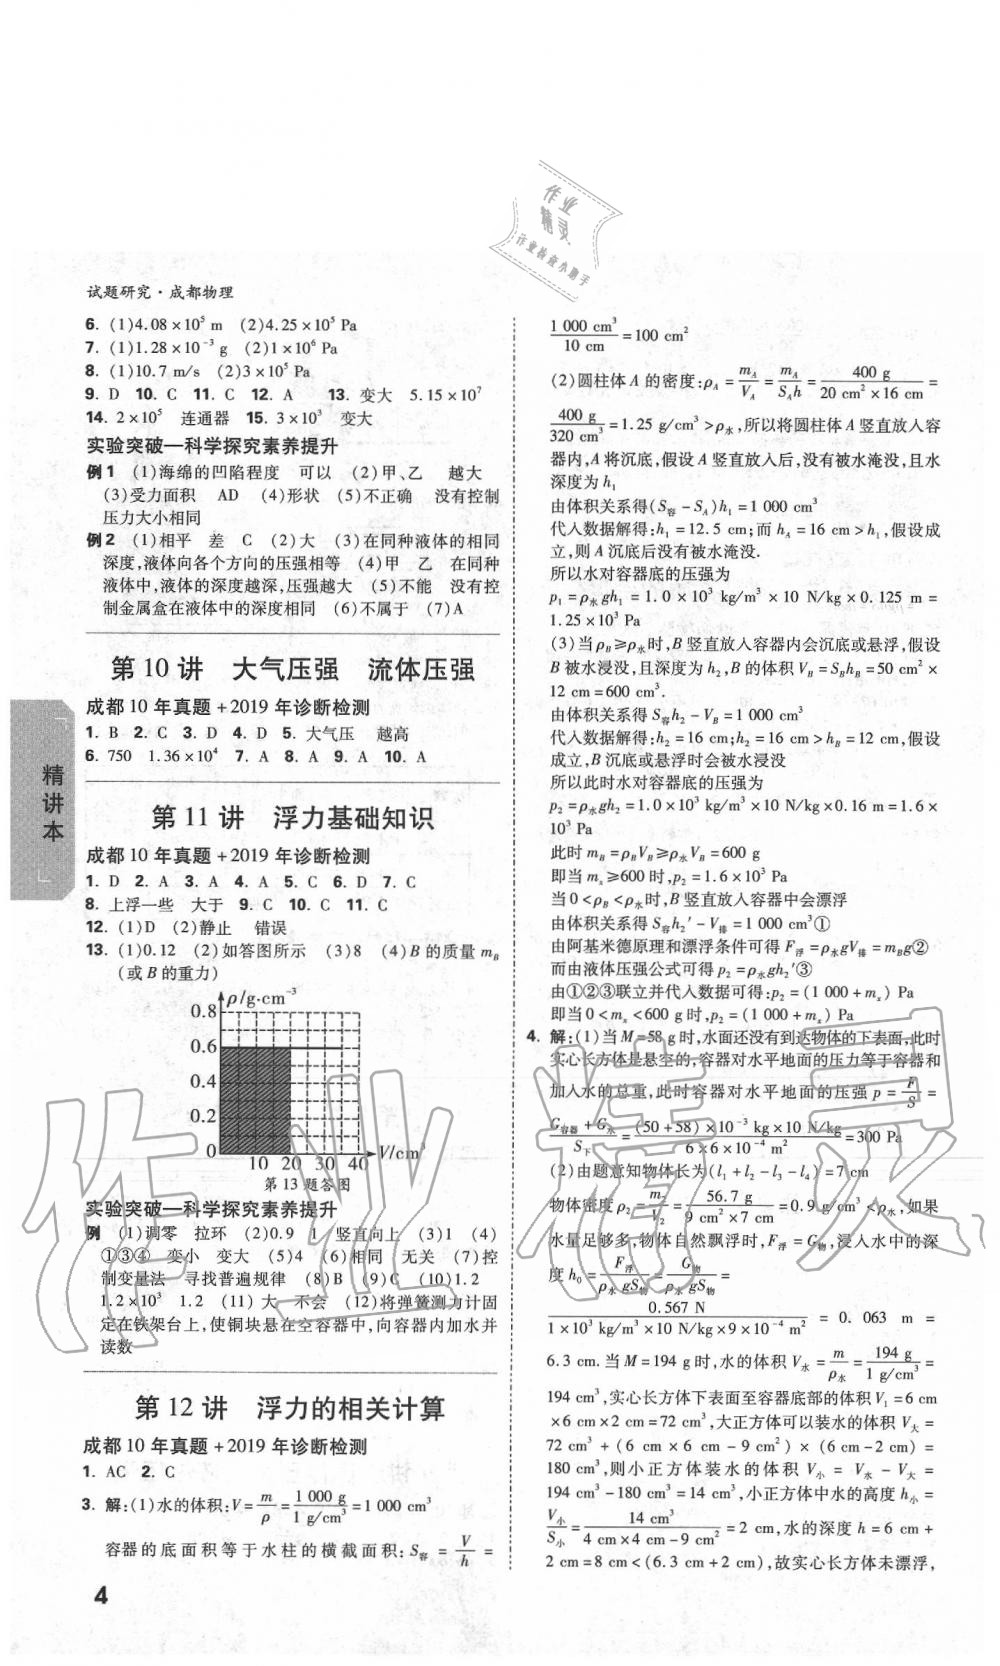 作业
精灵
作业检查小助手
试题研究·成都物理
6. (1)4.08×10⁵ m (2)4.25×10⁵ Pa
7. (1)1.28×10⁻³ g (2)1×10⁶ Pa
8. (1)10.7 m/s (2)3×10⁵ Pa
9. D 10. C 11. C 12. A 13. 变大 5.15×10⁷
14. 2×10⁵ 连通器 15. 3×10³ 变大
实验突破—科学探究素养提升
例1 (1)海绵的凹陷程度 可以 (2)甲、乙 越大
(3)受力面积 AD (4)形状 (5)不正确 没有控制
压力大小相同
例2 (1)相平 差 C (2)大 (3)在同种液体的相同
深度,液体向各个方向的压强相等 (4)甲、乙 在同种
液体中,液体的深度越深,压强越大 (5)不能 没有控
制金属盒在液体中的深度相同 (6)不属于 (7)A
第10讲 大气压强 流体压强
成都10年真题+2019年诊断检测
1. B 2. C 3. D 4. D 5. 大气压 越高
6. 750 1.36×10⁴ 7. A 8. A 9. A 10. A
第11讲 浮力基础知识
成都10年真题+2019年诊断检测
1. D 2. A 3. A 4. A 5. C 6. D 7. C
8. 上浮一些 大于 9. C 10. C 11. C
12. (1)D (2)静止 错误
13. (1)0.12 (2)如答图所示 (3)8 (4)B的质量m_B
(或B的重力)
ρ/g·cm⁻³
0.8
0.6
0.4
0.2
0
10 20 30 40 V/cm³
第13题答图
实验突破—科学探究素养提升
例 (1)调零 拉环 (2)0.9 1 竖直向上 (3)1 (4)
①③④ 变小 变大 (5)4 (6)相同 无关 (7)控
制变量法 寻找普遍规律 (8)B (9)C (10)1.2
1.2×10³ 1.2 (11)大 不会 (12)将弹簧测力计固
定在铁架台上,使铜块悬在空容器中,向容器内加水并
读数
第12讲 浮力的相关计算
成都10年真题+2019年诊断检测
1. AC 2. C
3. 解:(1)水的体积:V=m/ρ=1 000 g/1 g/cm³=1 000 cm³
容器的底面积等于水柱的横截面积:S容=V/h=
精讲本
4
1 000 cm³/10 cm=100 cm²
(2)圆柱体A的密度:ρ_A=m_A/V_A=m_A/S_A h=400 g/20 cm²×16 cm=
400 g/320 cm³=1.25 g/cm³>ρ水,所以将圆柱体A竖直放入容
器内,A将沉底,假设A竖直放入后,没有被水淹没,且水
深度为h₁
由体积关系得(S容-S_A)h₁=1 000 cm³
代入数据解得:h₁=12.5 cm;而h_A=16 cm>h₁,假设成
立,则A沉底后没有被水淹没.
所以水对容器底的压强为
p₁=ρ水gh₁=1.0×10³ kg/m³×10 N/kg×0.125 m=
1.25×10³ Pa
(3)当ρ_B≥ρ水时,B竖直放入容器内会沉底或悬浮,假设
B被水浸没,且深度为h₂,B的体积V_B=S_B h_B=50 cm²×
12 cm=600 cm³.
由体积关系得S容h₂-V_B=1 000 cm³
代入数据解得:h₂=16 cm;h₂=16 cm>h_B=12 cm,假设
成立,B沉底或悬浮时会被水浸没
所以此时水对容器底的压强为
p₂=ρ水gh₂=1.0×10³ kg/m³×10 N/kg×0.16 m=1.6×
10³ Pa
此时m_B=ρ_B V_B≥ρ水V_B=600 g
即当m_x≥600 g时,p₂=1.6×10³ Pa
当0<ρ_B<ρ水时,B竖直放入容器中会漂浮
由体积关系得S容h₂′-V排=1 000 cm³①
由阿基米德原理和漂浮条件可得F浮=ρ水gV排=m_B g②
而由液体压强公式可得p₂=ρ水gh₂′③
由①②③联立并代入数据可得:p₂=(1 000+m_x) Pa
即当0<m_x<600 g时,p₂=(1 000+m_x) Pa
4. 解:(1)当M=58 g时,水面还没有到达物体的下表面,此时
实心长方体是悬空的,容器对水平地面的压力等于容器和
加入水的总重,此时容器对水平地面的压强p=F/S=
G容器+G水/S下=(50+58)×10⁻³ kg×10 N/kg/6×6×10⁻⁴ m²=300 Pa
(2)由题意知物体长为(l₁+l₂-l₃-l₄)=7 cm
物体密度ρ₂=m₂/V₂=56.7 g/9 cm²×7 cm=0.9 g/cm³<ρ水,如果
水量足够多,物体自然飘浮时,F浮=G物,浸入水中的深
度h₀=F浮/ρ水gS物=G物/ρ水gS物=
0.567 N/1×10³ kg/m³×10 N/kg×9×10⁻⁴ m²=0.063 m=
6.3 cm.当M=194 g时,水的体积V水=m/ρ水=194 g/1 g/cm³=
194 cm³,实心长方体下表面至容器底部的体积V₁=6 cm
×6 cm×2 cm=72 cm³,大正方体可以装水的体积V大=
72 cm³+(6 cm×6 cm-9 cm²)×(6 cm-2 cm)=
180 cm³,则小正方体装水的体积V小=V水-V大=
194 cm³-180 cm³=14 cm³,小正方体中水的高度h小=
V小/S小=14 cm³/4 cm×4 cm-9 cm²=2 cm,水的深度h=6 cm+
2 cm=8 cm<(6.3 cm+2 cm),故实心长方体未漂浮,
作业精灵